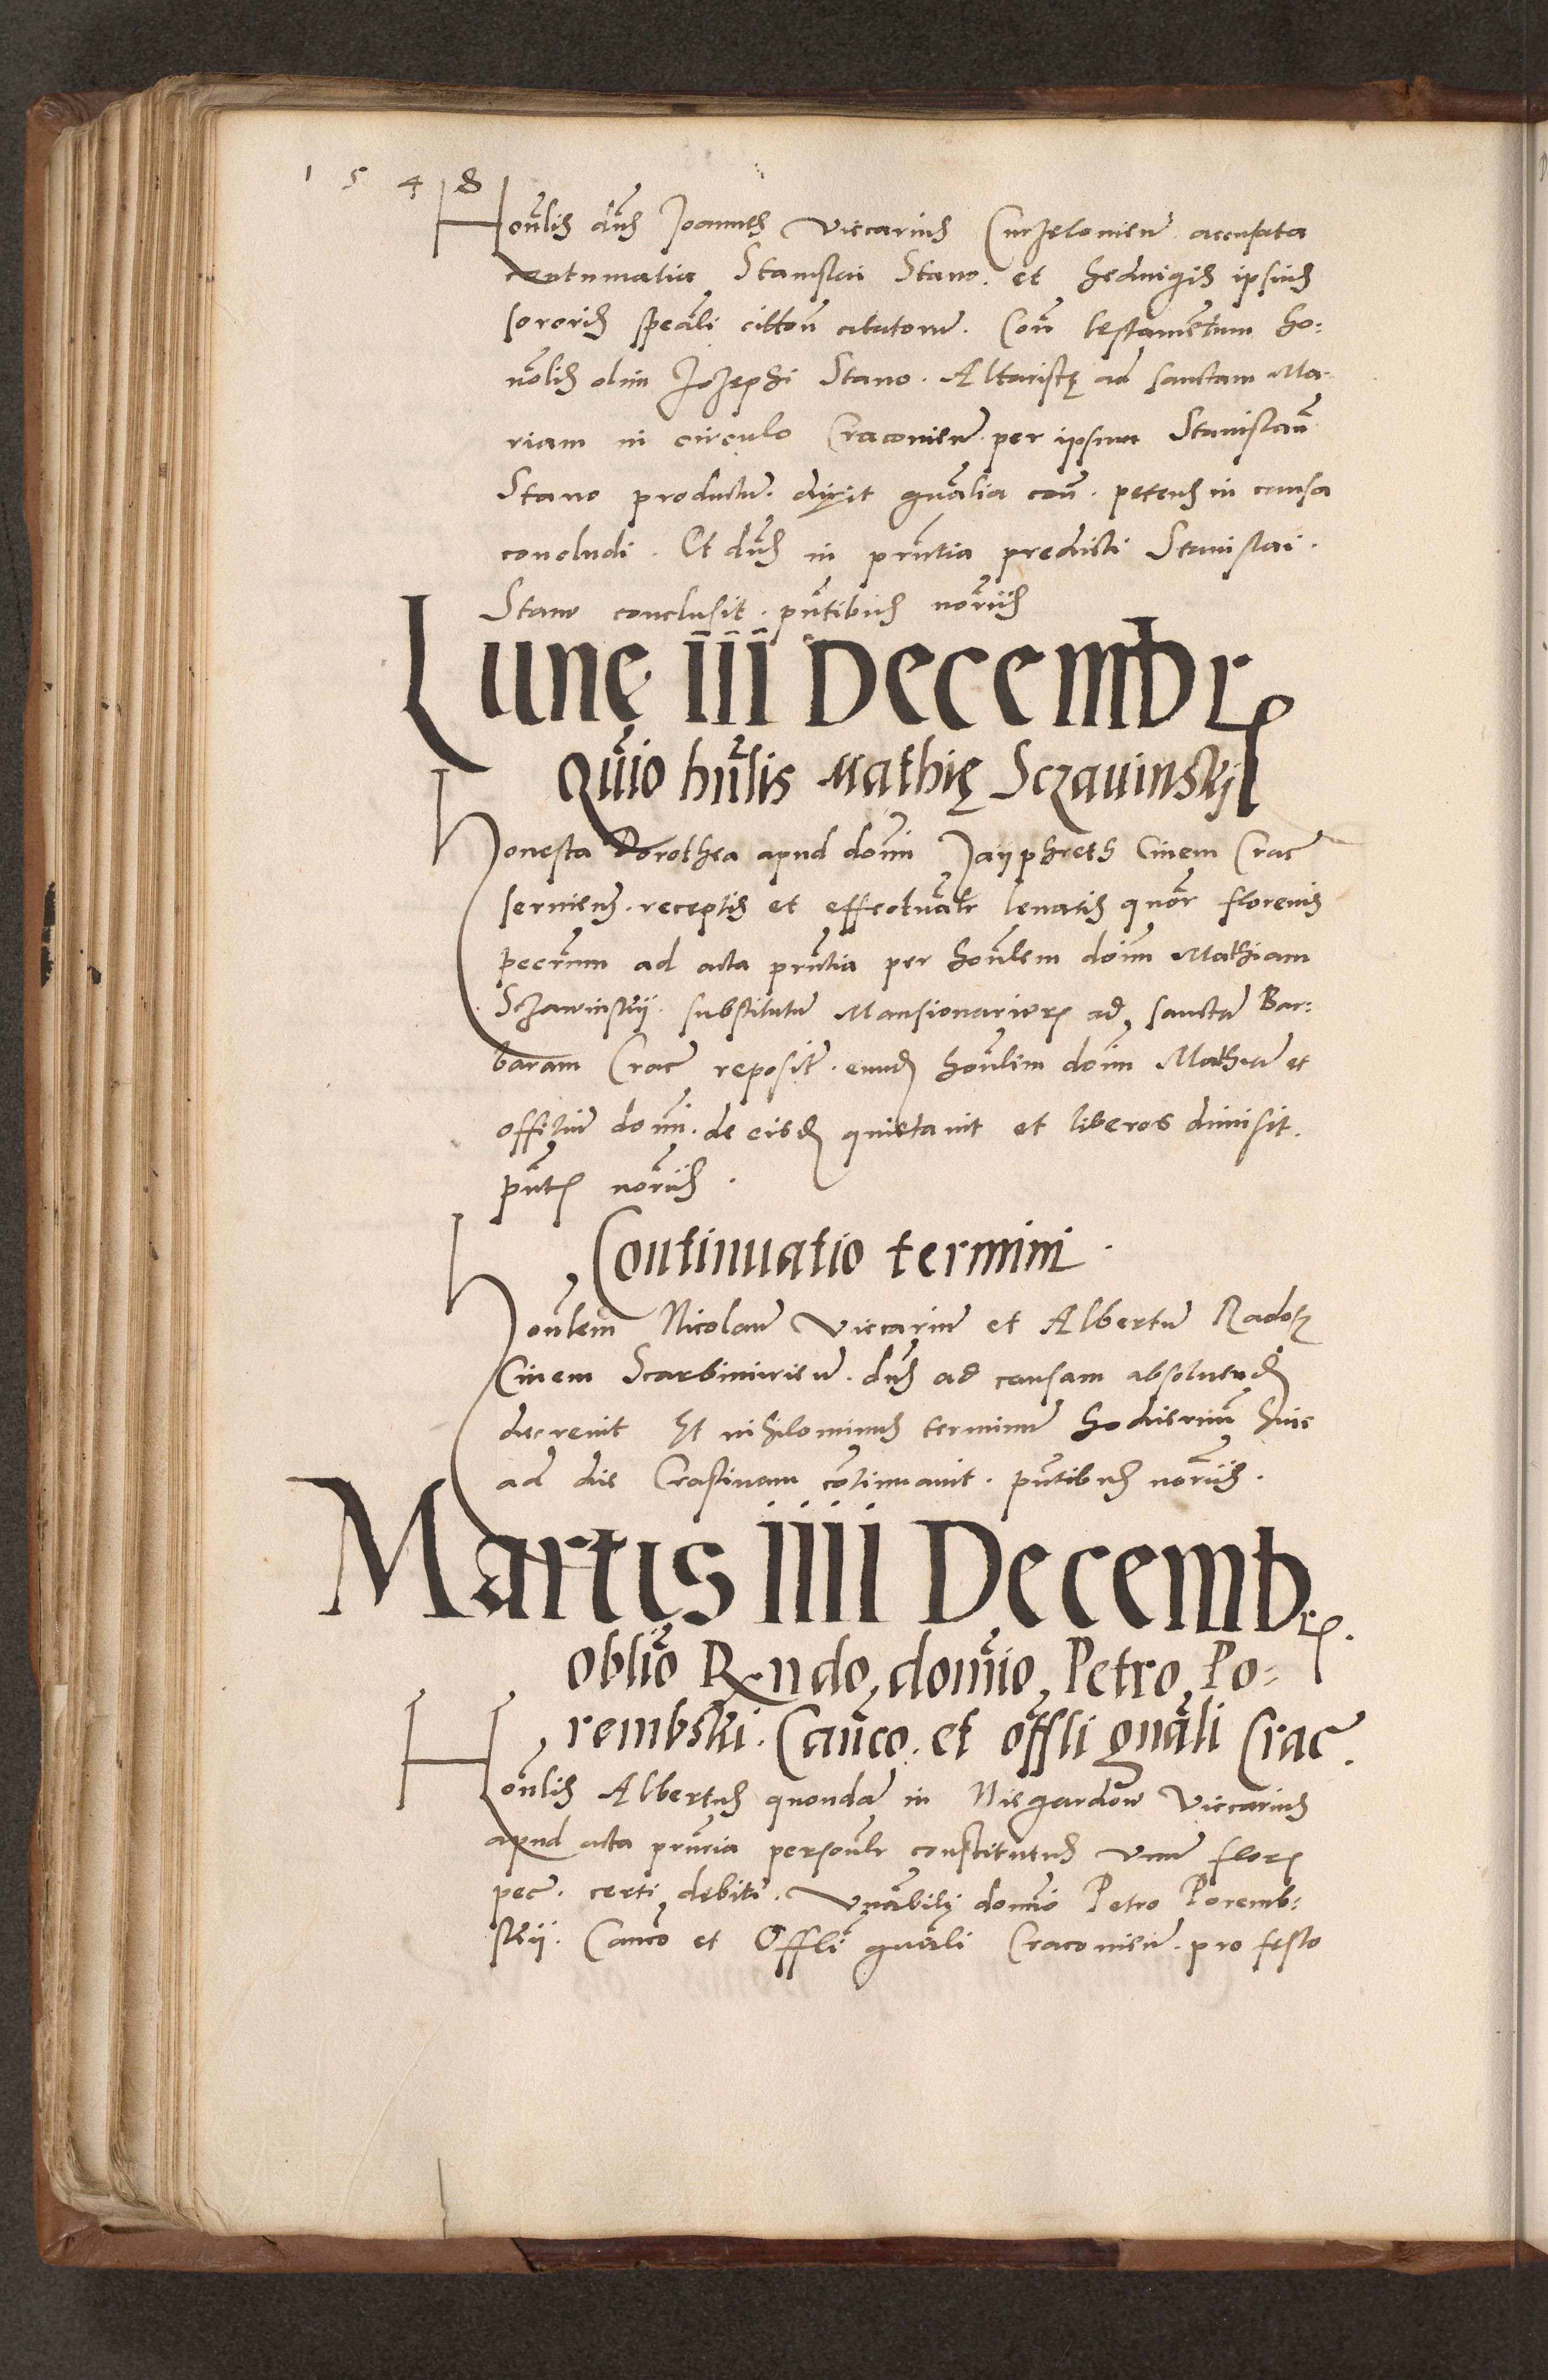 1 5 4 8
Hon̄lis dn̄s Joannes Viccarius Curzelonien̄ accusata
contumatia Stanislai Stano. et Heduigis ipsius
sororis speāli citton̄ citatorum̄. Con̄ testamentum ho:
nōlis olim Jozephi Stano. Altaristę ad sanctam Ma-
riam in circulo Cracouien̄. per ipsum Stanislaū
Stano productum̄. dixit gn̄alia con̄. petens in causa
concludi. Et dn̄s in prn̄tia predicti Stanislai.
Stano conclusit. pn̄tibus norīis
Lunę III Decembr
Qūio hn̄lis Mathię Sczauinskij
Honesta Dorothea apud domī Jayphreth Ciuem Crac̄
seruiens. receptis et effectuālr leuatis quōr florenis
pecūnm ad acta prn̄tia per honlēm doīm Mathiam
Sczawinskij. substitutum̄ Mansionarior ad sanctam̄ Bar:
baram Crac̄ reposit̄. eund honlēm doīm Mathiam̄ et
offitium̄ domī. de eisd quietauit et liberos dimisit.
pn̄t noriīs.
Continuatio termini.
Honlēm Nicolaum̄ Viccarium̄ et Albertum̄ Radosz
Ciuem Scarbimirien̄. dn̄s ad causam absoluend
decreuit Et nihilominus terminum̄ hodiernum̄ huic
ad die Crastinam cōtinuauit. pn̄tibus noriīs.
Martis iiii Decembr.
Obliō Rndo. domīo. Petro. Po=
rembski. Cancō. et offli gnāli Crac̄.
Honlīs Albertus quondam̄ in Niegardow Viccarius
apud acta prn̄tia personlr̄ constitutus vnum̄ flor
pec̄. certi debiti. Vn̄abili domīo Petro Poremb:
skij. Cancō et Offlī gnāli Cracouien̄. pro festo